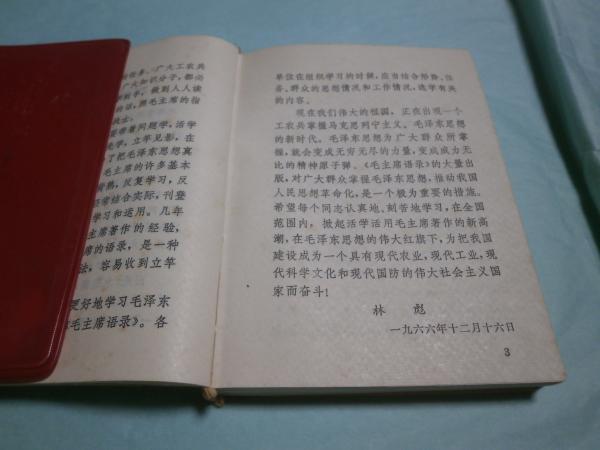 的任务。广大工农兵
广大知识分子，都必
做到人人读
话，照毛主席的指
战士。
要带着问题学，活学
先学，立竿见影，在
了把毛泽东思想真
毛主席的许多基本
背熟，反复学习，反
常结合实际，刊登
学习和运用。几年
席著作的经验，
席的语录，是一种
法，容易收到立竿
更好地学习毛泽东
《毛主席语录》。各
单位在组织学习的时候，应当结合形势、任
务、群众的思想情况和工作情况，选学有关
的内容。
现在我们伟大的祖国，正在出现一个
工农兵掌握马克思列宁主义、毛泽东思想
的新时代。毛泽东思想为广大群众所掌
握，就会变成无穷无尽的力量，变成威力无
比的精神原子弹。《毛主席语录》的大量出
版，对广大群众掌握毛泽东思想，推动我国
人民思想革命化，是一个极为重要的措施。
希望每个同志认真地、刻苦地学习，在全国
范围内，掀起活学活用毛主席著作的新高
潮，在毛泽东思想的伟大红旗下，为把我国
建设成为一个具有现代农业，现代工业，现
代科学文化和现代国防的伟大社会主义国
家而奋斗！
林 彪
一九六六年十二月十六日
3